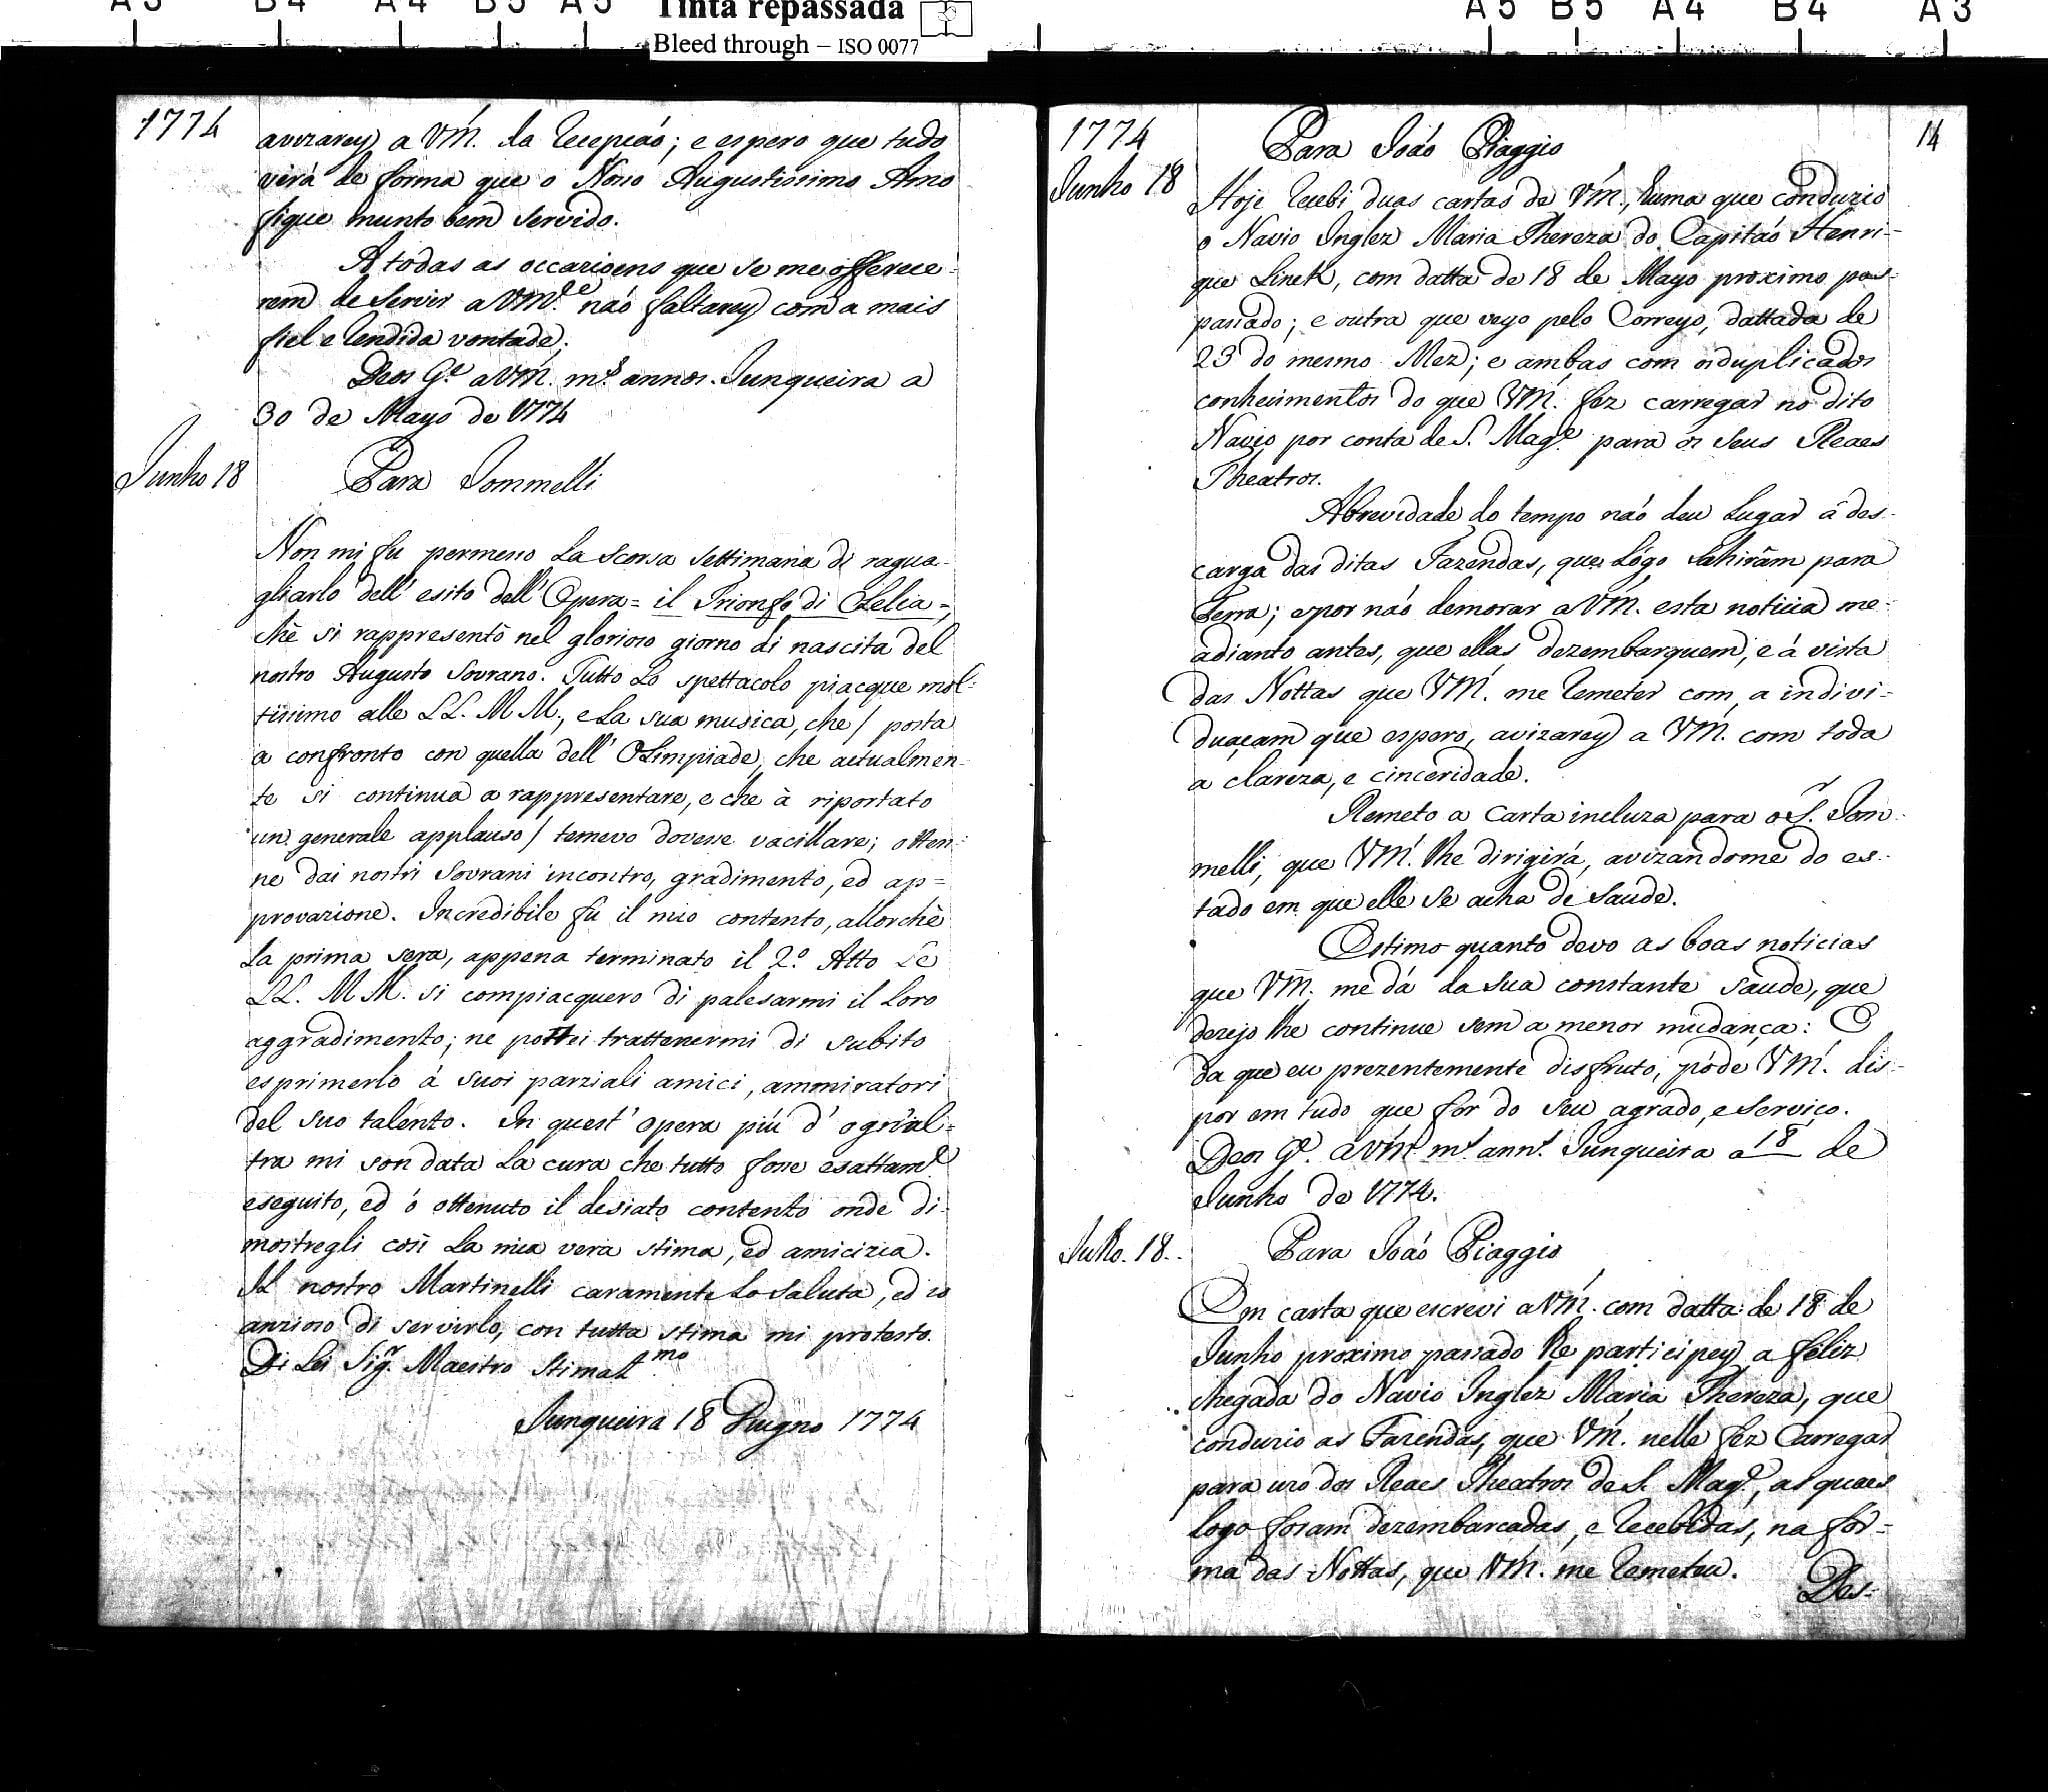 A3 B4 A4 B5 A5 Tinta repassada A5 B5 A4 B4 A3
Bleed through – ISO 0077
1774
avizarey a VM. da recepçaõ; e espero que tudo
virá de forma que o Nosso Augustissimo Amo
fique muuto bem servido.
A todas as occazioens que se me offerece-
rem de servir a VM.ce naõ faltarey com a mais
fiel e rendida vontade.
Deos G.e a VM. m.s annos. Junqueira a
30 de Mayo de 1774
Junho 18
Para Jommelli
Non mi fu permesso la scorsa settimana di ragua-
gliarlo dell' esito dell' Opera = il Trionfo di Clelia =,
chè si rappresentò nel glorioso giorno di nascita del
nostro Augusto Sovrano. Tutto Lo spettacolo piacque mol-
tissimo alle LL. MM., e La sua musica, che / posta
a confronto con quella dell' Olimpiade, che actualmen-
te si continua a rappresentare, e che à riportato
un generale applauso / temevo dovesse vacillare; otten-
ne dai nostri Sovrani incontro, gradimento, ed ap=
provazione. Incredibile fu il mio contento, allorchè
La prima sera, appena terminato il 2.º Atto Le
LL. MM. si compiacquero di palesarmi il Loro
aggradimento; ne pottei trattenermi di subito
esprimerlo á suoi parziali amici, ammiratori
del suo talento. In quest' opera piú d' ogn' al-
tra mi son data La cura che tutto fosse esattam.e
eseguito, ed ó ottenuto il desiato contento onde di-
mostregli così La mia vera stima, ed amicizia.
Il nostro Martinelli caramente Lo saluta, ed io
anzioso di servirlo, con tutta stima mi protesto.
Di Lei Sig.r Maestro Stimat.mo
Junqueira 18 Guigno 1774
1774
14
Para Joaõ Piaggio
Junho 18
Hoje recebi duas cartas de VM., huma que conduzio
o Navio Inglez Maria Thereza do Capitaõ Henri-
que Linek, com datta de 18 de Mayo proximo pas-
passado; e outra que veyo pelo Correyo, dattada de
23 do mesmo Mez; e ambas com os duplicados
conhecimentos do que VM. fez carregar no dito
Navio por conta de S. Mag.e para os seus Reaes
Theatros.
A brevidade do tempo naõ deu lugar â des-
carga das ditas Fazendas, que lógo sahirâm para
Terra; e por naõ demorar a VM. esta noticia me
adianto antes, que ellas dezembarquem, e á vista
das Nottas que VM. me remeter com a indivi-
duaçam que espero, avizarey a VM. com toda
a clareza, e cinceridade.
Remeto a Carta incluza para o S.r Jom-
melli, que VM. lhe dirigirá, avizandome do es-
tado em que elle se acha de saude.
Estimo quanto devo as boas noticias
que VM. me dá da sua constante saude, que
dezejo lhe continue sem a menor mudança: E
da que eu prezentemente disfruto, póde VM. dis-
por em tudo que fôr do seu agrado, e serviço.
Deos G.e a VM m.s ann.s Junqueira a 18 de
Junho de 1774.
Julho. 18.
Para Joaõ Piaggio
Em carta que escrevi a VM. com datta de 18 de
Junho proximo passado lhe participey a feliz
chegada do Navio Inglez Maria Thereza, que
conduzio as Fazendas, que VM. nelle fez Carregar
para uzo dos Reaes Theatros de S. Mag.e, as quaes
logo foram dezembarcadas, e recebidas, na fór-
ma das Nottas, que VM. me remeteu.
Des-